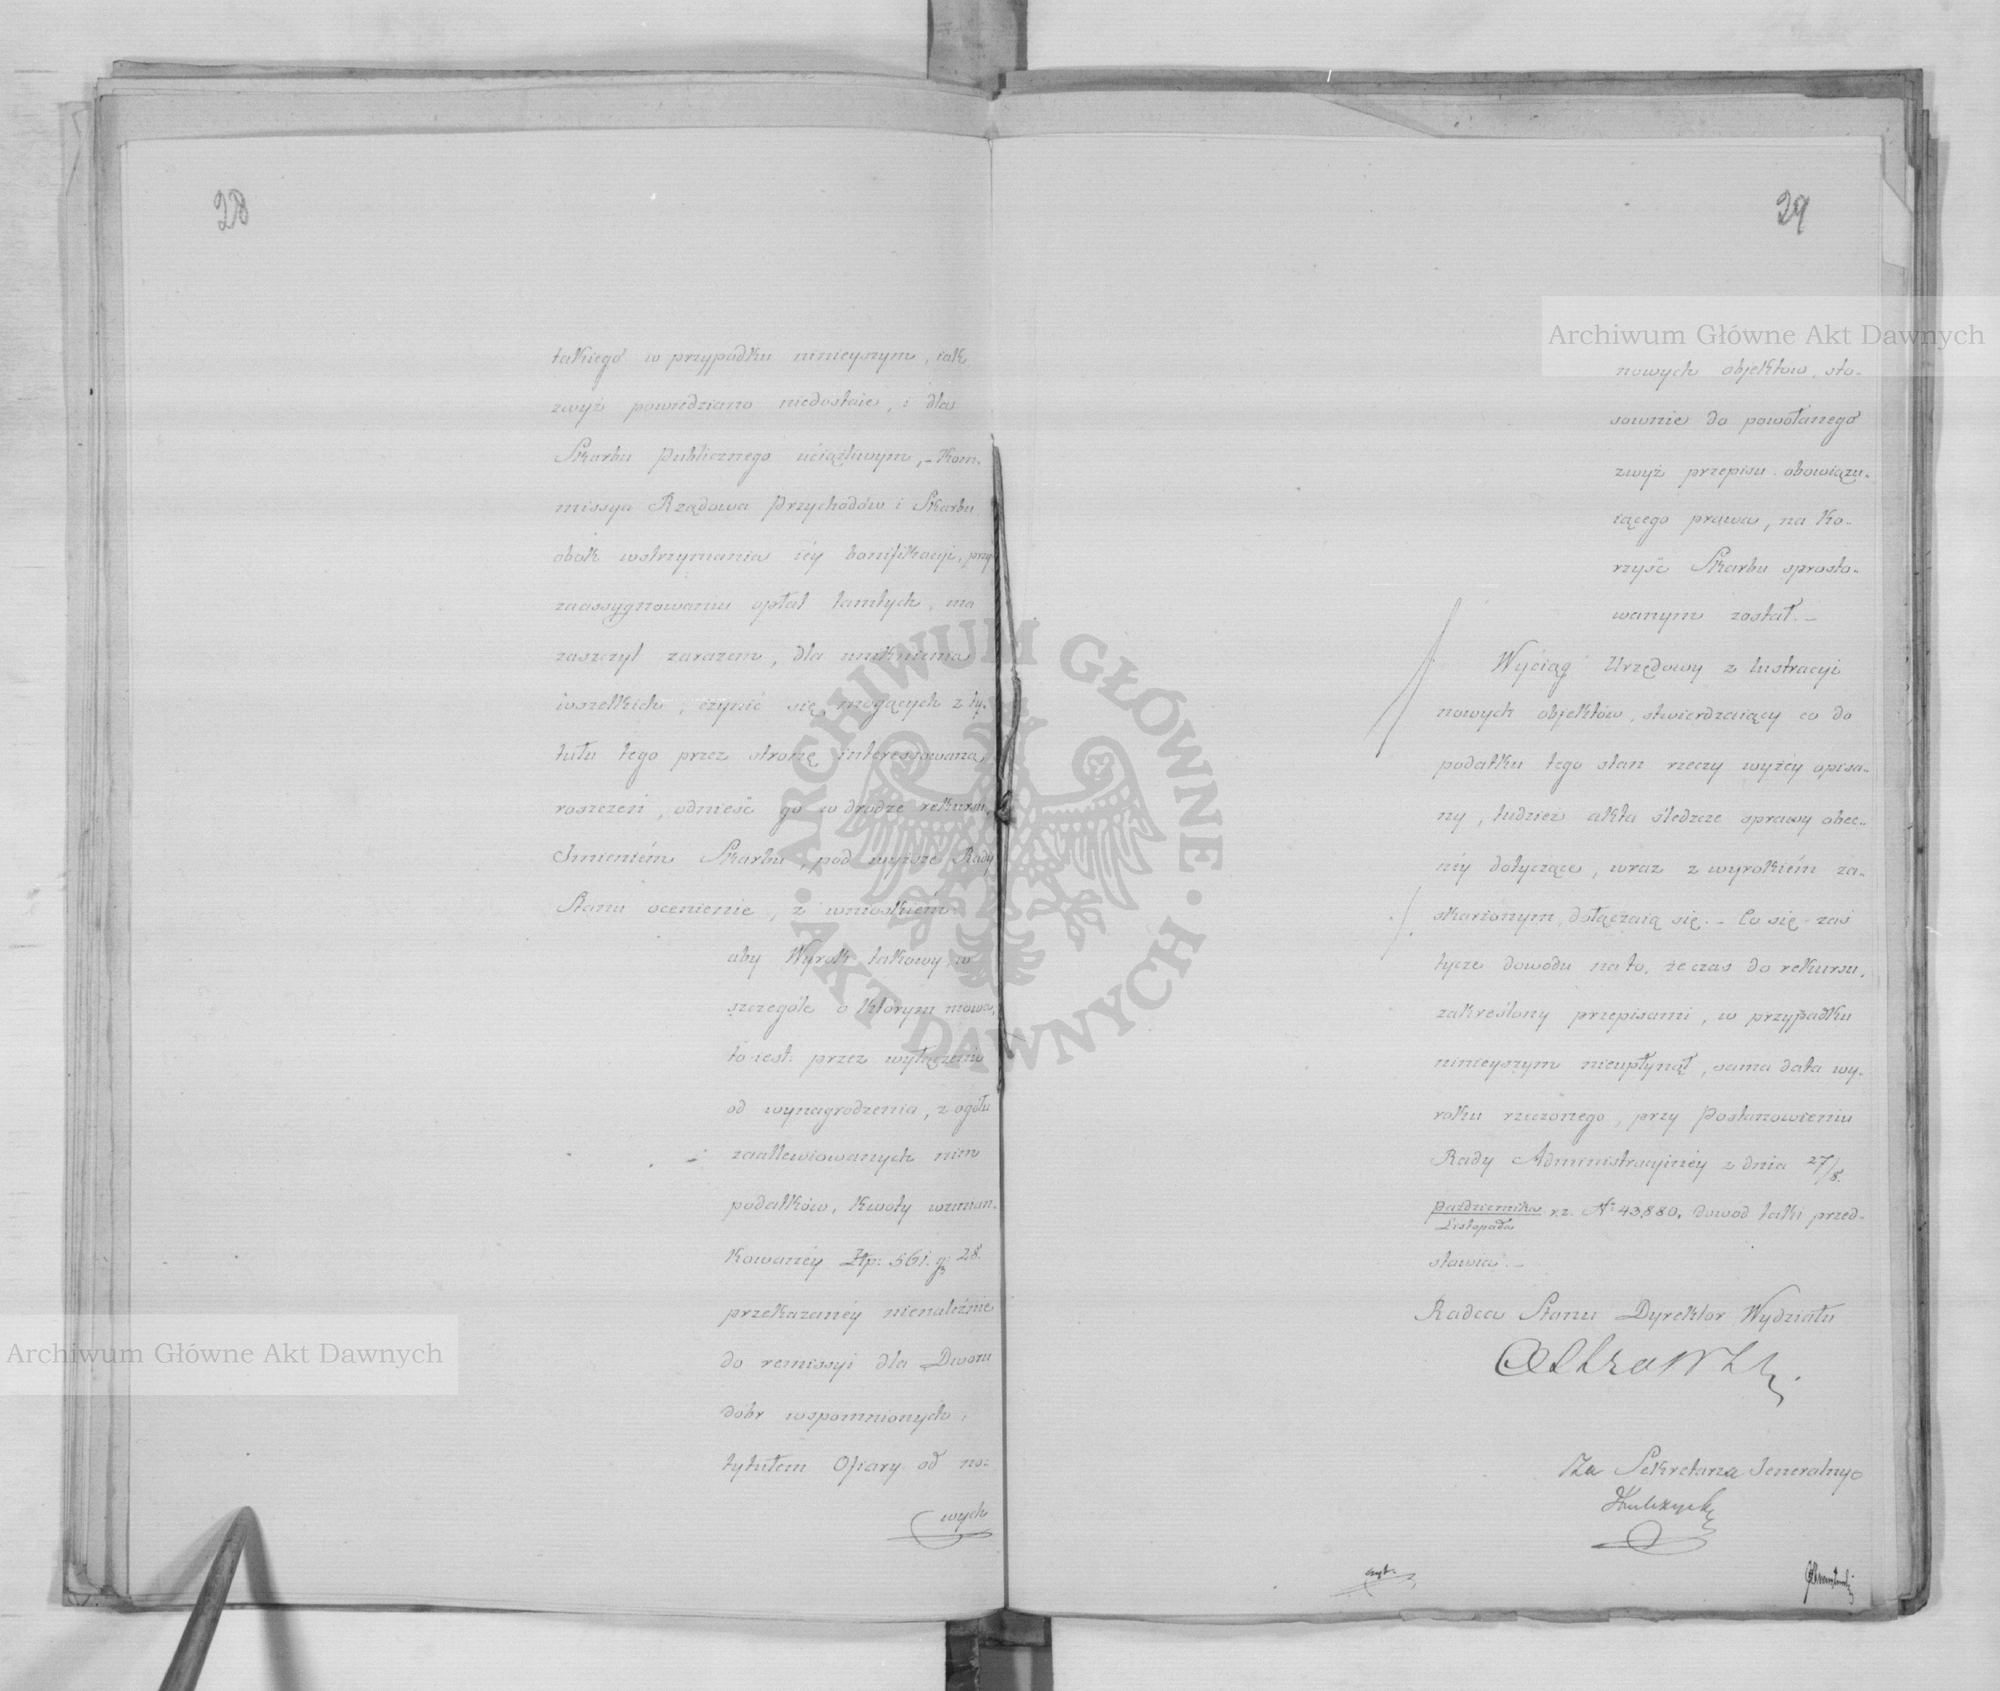 28
takiego w przypadku ninieyszym, iak
zwyż powiedziano niedostaie, i dla
Skarbu Publicznego uciążliwym, – Kom-
missya Rządowa Przychodów i Skarbu
obok wstrzymania iéy bonifikacyi, przy
zaassygnowaniu opłat tamtych, ma
zaszczyt zarazem, dla uniknienia
wszelkich, czynić się mogących z ty-
tułu tego przez stronę interessowaną
roszczeń, odnieść go w drodze rekursu,
Imieniém Skarbu, pod wyższe Rady
Stanu ocenienie, z wnioskiém
aby Wyrok takowy, w
szczególe o którym mowa,
to iest: przez wyłączenie
od wynagrodzenia, z ogółu
zaallewiowanych nim
podatków, kwoty wzmian-
kowanéy Złp: 561. gr 28.
przekazanéy nienależnie
do remissyi dla Dworu
dóbr wspomnionych,
tytułem Ofiary od no-
wych
29
nowych objektów, sto-
sownie do powołanego
zwyż przepisu obowiązu-
iącego prawa, na ko-
rzyść Skarbu sprosto-
wanym został. –
Wyciąg Urzędowy z lustracyi
nowych objektów, stwierdzaiący co do
podatku tego stan rzeczy wyżéy opisa-
ny, tudzież akta śledcze sprawy obec-
néy dotyczące, wraz z wyrokiém za-
skarżonym, dołączaią się. – Co się zaś
tycze dowodu na to, że czas do rekursu,
zakreślony przepisami, w przypadku
ninieyszym nieupłynął, sama data wy-
roku rzeczonego, przy Postanowieniu
Rady Administracyinéy z dnia 27/8.
Października
Listopada r.z. No 43,880, dowód taki przed-
stawia. –
Radca Stanu Dyrektor Wydziału
Za Sekretarza Jeneralnego
Archiwum Główne Akt Dawnych
Archiwum Główne Akt Dawnych
ARCHIWUM GŁÓWNE · AKT DAWNYCH ·